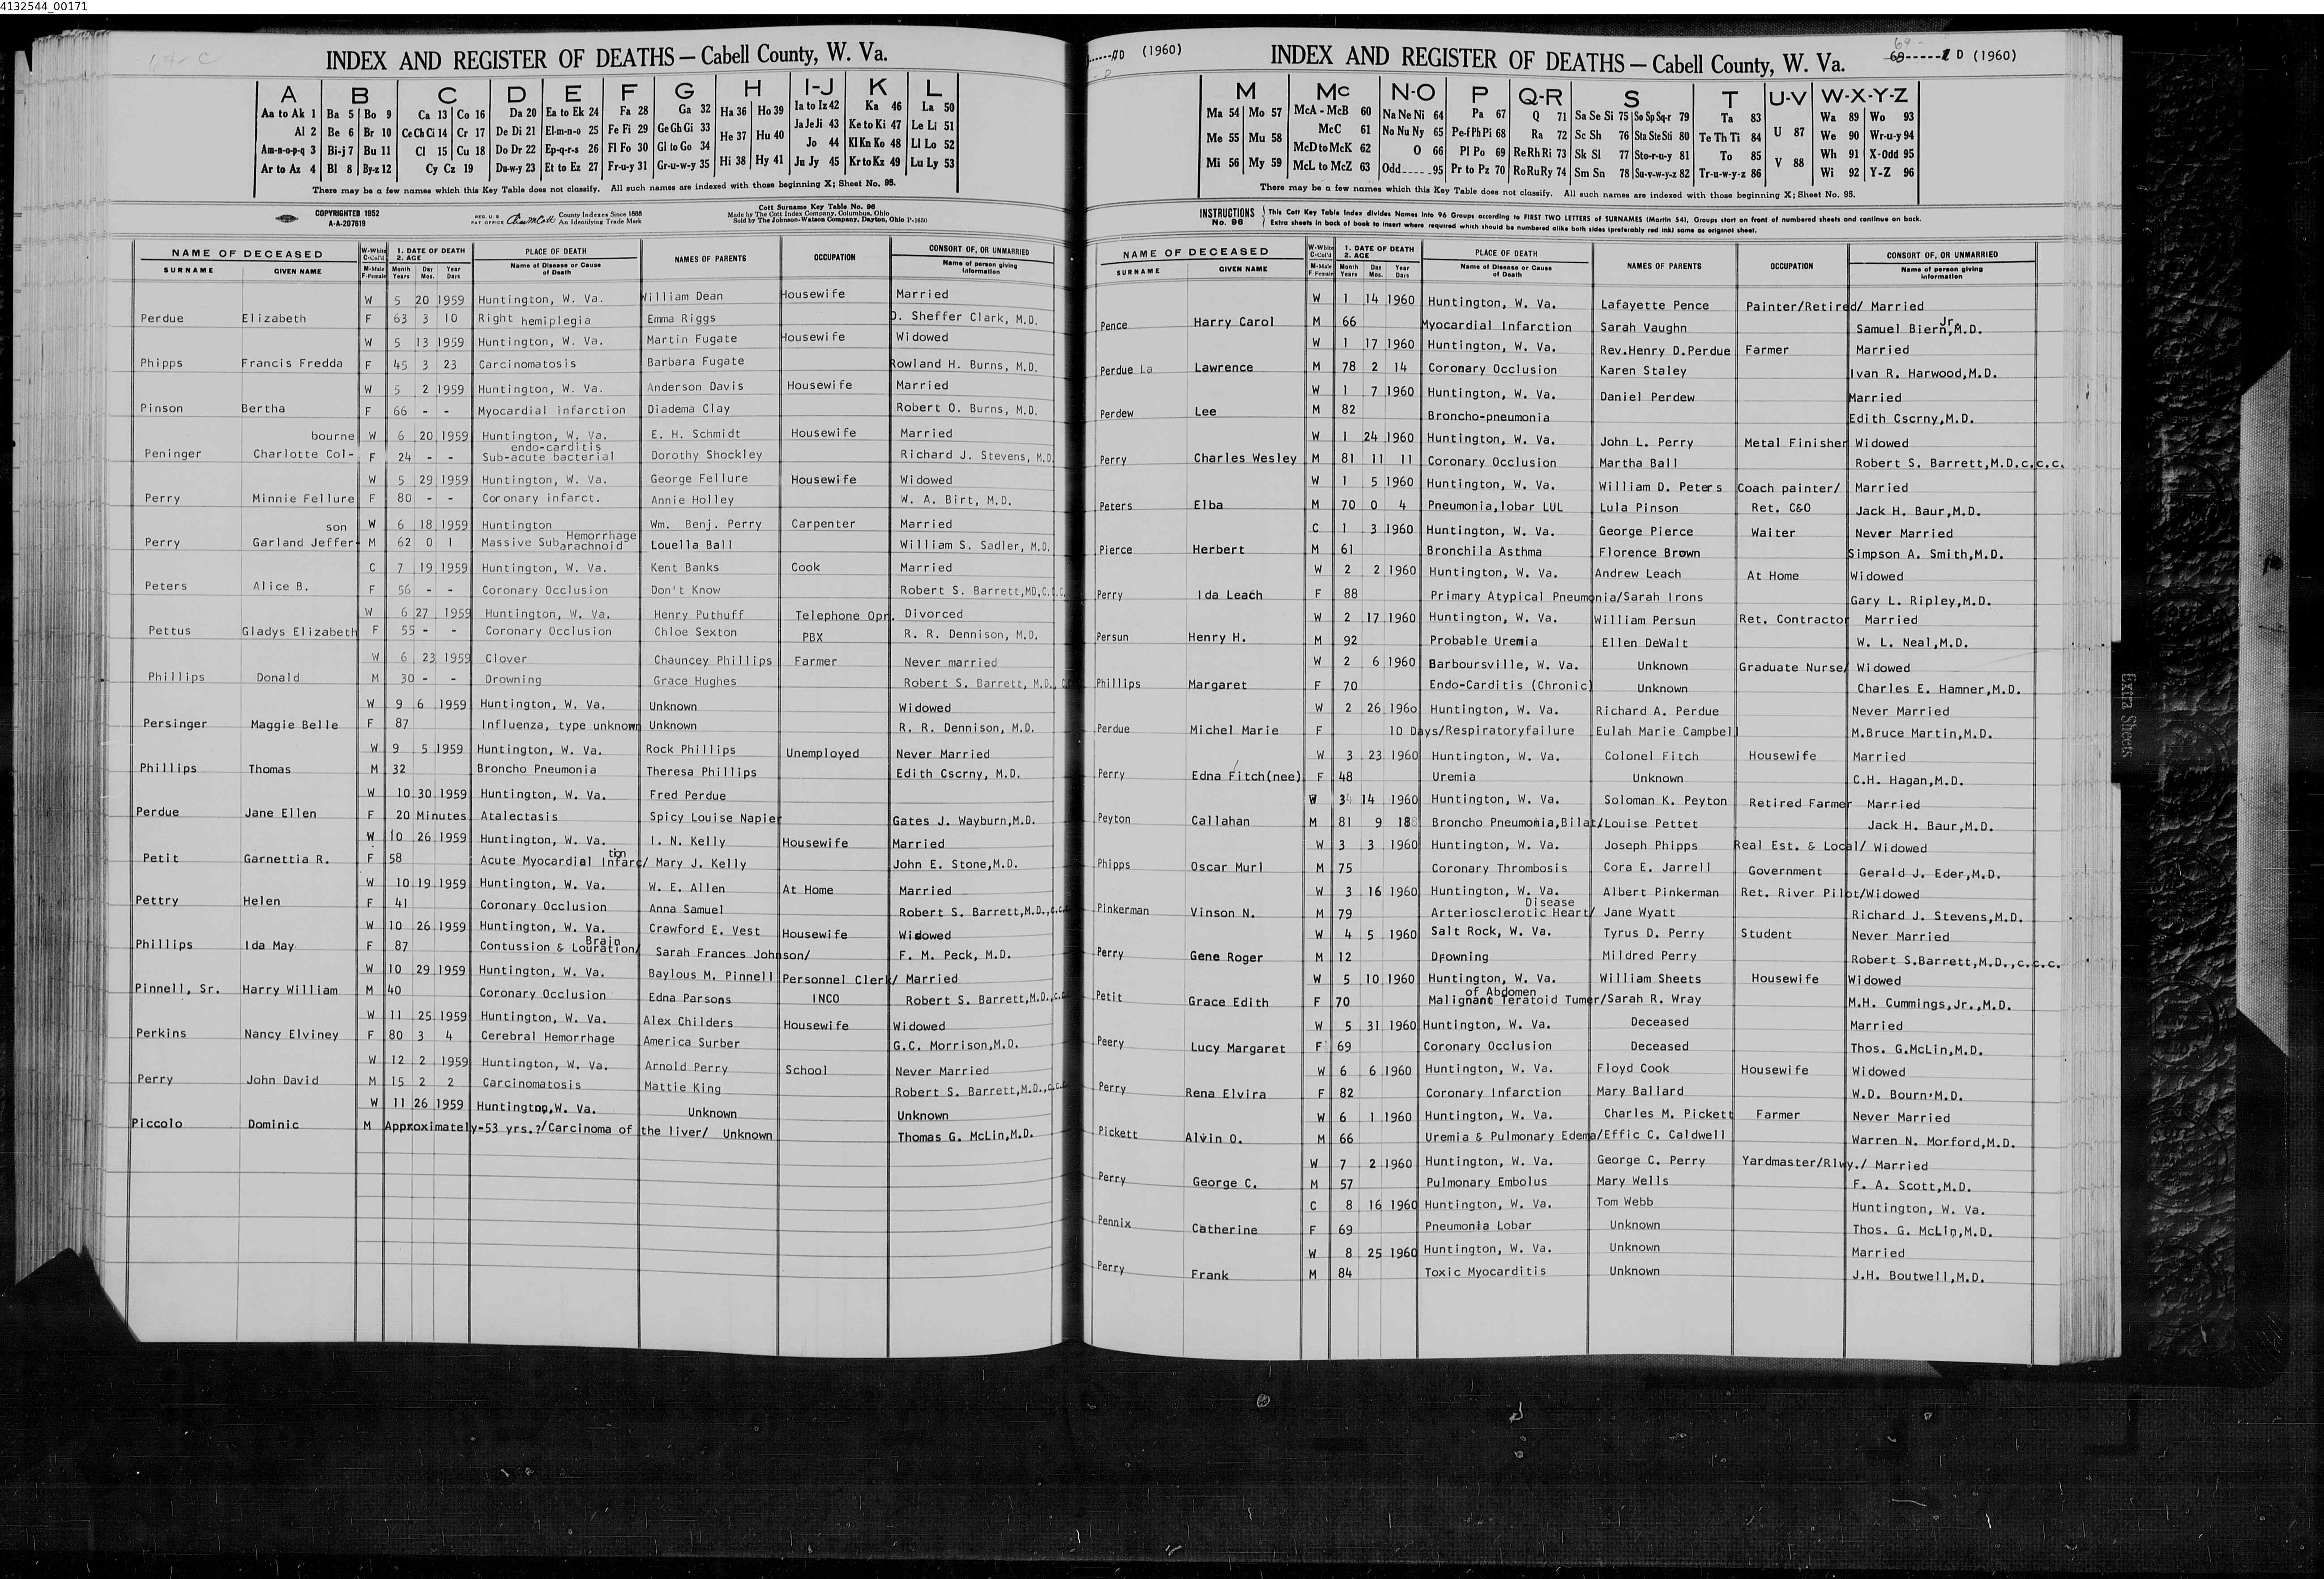 4132544_00171
64- C
INDEX AND REGISTER OF DEATHS — Cabell County, W. Va.
A B C D E F G H I-J K L
Aa to Ak 1 Ba 5 Bo 9 Ca 13 Co 16 Da 20 Ea to Ek 24 Fa 28 Ga 32 Ha 36 Ho 39 Ia to Iz 42 Ka 46 La 50
Al 2 Be 6 Br 10 Ce Ch Ci 14 Cr 17 De Di 21 El-m-n-o 25 Fe Fi 29 Ge Gh Gi 33 He 37 Hu 40 Ja Je Ji 43 Ke to Ki 47 Le Li 51
Am-n-o-p-q 3 Bi-j 7 Bu 11 Cl 15 Cu 18 Do Dr 22 Ep-q-r-s 26 Fl Fo 30 Gl to Go 34 Jo 44 Kl Kn Ko 48 Ll Lo 52
Ar to Az 4 Bl 8 By-z 12 Cy Cz 19 Du-w-y 23 Et to Ez 27 Fr-u-y 31 Gr-u-w-y 35 Hi 38 Hy 41 Ju Jy 45 Kr to Kz 49 Lu Ly 53
There may be a few names which this Key Table does not classify. All such names are indexed with those beginning X; Sheet No. 95.
COPYRIGHTED 1952
A-A-207619
REG. U. S. PAT. OFFICE County Indexes Since 1888
An Identifying Trade Mark
Cott Surname Key Table No. 96
Made by The Cott Index Company, Columbus, Ohio
Sold by The Johnson-Watson Company, Dayton, Ohio P-1650
NAME OF DECEASED W-White C-Col'd 1. DATE OF DEATH 2. AGE PLACE OF DEATH NAMES OF PARENTS OCCUPATION CONSORT OF, OR UNMARRIED
SURNAME GIVEN NAME M-Male F-Female Month Years Day Mos. Year Days Name of Disease or Cause of Death Name of person giving Information
W 5 20 1959 Huntington, W. Va. William Dean Housewife Married
Perdue Elizabeth F 63 3 10 Right hemiplegia Emma Riggs D. Sheffer Clark, M.D.
W 5 13 1959 Huntington, W. Va. Martin Fugate Housewife Widowed
Phipps Francis Fredda F 45 3 23 Carcinomatosis Barbara Fugate Rowland H. Burns, M.D.
W 5 2 1959 Huntington, W. Va. Anderson Davis Housewife Married
Pinson Bertha F 66 - - Myocardial infarction Diadema Clay Robert O. Burns, M.D.
bourne W 6 20 1959 Huntington, W. Va. E. H. Schmidt Housewife Married
endo-carditis
Peninger Charlotte Col- F 24 - - Sub-acute bacterial Dorothy Shockley Richard J. Stevens, M.D.
W 5 29 1959 Huntington, W. Va. George Fellure Housewife Widowed
Perry Minnie Fellure F 80 - - Coronary infarct. Annie Holley W. A. Birt, M.D.
son W 6 18 1959 Huntington Wm. Benj. Perry Carpenter Married
Hemorrhage
Perry Garland Jeffer- M 62 0 1 Massive Sub arachnoid Louella Ball William S. Sadler, M.D.
C 7 19 1959 Huntington, W. Va. Kent Banks Cook Married
Peters Alice B. F 56 - - Coronary Occlusion Don't Know Robert S. Barrett,MD,C.C.C.
W 6 27 1959 Huntington, W. Va. Henry Puthuff Telephone Opr. Divorced
Pettus Gladys Elizabeth F 55 - - Coronary Occlusion Chloe Sexton PBX R. R. Dennison, M.D.
W 6 23 1959 Clover Chauncey Phillips Farmer Never married
Phillips Donald M 30 - - Drowning Grace Hughes Robert S. Barrett, M.D.,
W 9 6 1959 Huntington, W. Va. Unknown Widowed
Persinger Maggie Belle F 87 Influenza, type unknown Unknown R. R. Dennison, M.D.
W 9 5 1959 Huntington, W. Va. Rock Phillips Unemployed Never Married
Phillips Thomas M 32 Broncho Pneumonia Theresa Phillips Edith Cscrny, M.D.
W 10 30 1959 Huntington, W. Va. Fred Perdue
Perdue Jane Ellen F 20 Minutes Atalectasis Spicy Louise Napier Gates J. Wayburn,M.D.
W 10 26 1959 Huntington, W. Va. I. N. Kelly Housewife Married
tion
Petit Garnettia R. F 58 Acute Myocardial Infarc/ Mary J. Kelly John E. Stone,M.D.
W 10 19 1959 Huntington, W. Va. W. E. Allen At Home Married
Pettry Helen F 41 Coronary Occlusion Anna Samuel Robert S. Barrett,M.D.,c.c.c
W 10 26 1959 Huntington, W. Va. Crawford E. Vest Housewife Widowed
Brain
Phillips Ida May F 87 Contussion & Louration/ Sarah Frances Johnson/ F. M. Peck, M.D.
W 10 29 1959 Huntington, W. Va. Baylous M. Pinnell Personnel Clerk/ Married
Pinnell, Sr. Harry William M 40 Coronary Occlusion Edna Parsons INCO Robert S. Barrett,M.D.,c.c
W 11 25 1959 Huntington, W. Va. Alex Childers Housewife Widowed
Perkins Nancy Elviney F 80 3 4 Cerebral Hemorrhage America Surber G.C. Morrison,M.D.
W 12 2 1959 Huntington, W. Va. Arnold Perry School Never Married
Perry John David M 15 2 2 Carcinomatosis Mattie King Robert S. Barrett,M.D.,c.c.c
W 11 26 1959 Huntington,W. Va. Unknown Unknown
Piccolo Dominic M Approximately-53 yrs.?/Carcinoma of the liver/ Unknown Thomas G. McLin,M.D.
D (1960)
INDEX AND REGISTER OF DEATHS — Cabell County, W. Va.
69-
69------ D (1960)
M Mc N-O P Q-R S T U-V W-X-Y-Z
Ma 54 Mo 57 McA - McB 60 Na Ne Ni 64 Pa 67 Q 71 Sa Se Si 75 So Sp Sq-r 79 Ta 83 U 87 Wa 89 Wo 93
Me 55 Mu 58 McC 61 No Nu Ny 65 Pe-f Ph Pi 68 Ra 72 Sc Sh 76 Sta Ste Sti 80 Te Th Ti 84 We 90 Wr-u-y 94
McD to McK 62 O 66 Pl Po 69 Re Rh Ri 73 Sk Sl 77 Sto-r-u-y 81 To 85 V 88 Wh 91 X-Odd 95
Mi 56 My 59 McL to McZ 63 Odd-----95 Pr to Pz 70 Ro Ru Ry 74 Sm Sn 78 Su-v-w-y-z 82 Tr-u-w-y-z 86 Wi 92 Y-Z 96
There may be a few names which this Key Table does not classify. All such names are indexed with those beginning X; Sheet No. 95.
INSTRUCTIONS No. 96
This Cott Key Table Index divides Names into 96 Groups according to FIRST TWO LETTERS of SURNAMES (Martin 54), Groups start on front of numbered sheets and continue on back.
Extra sheets in back of book to insert where required which should be numbered alike both sides (preferably red ink) same as original sheet.
NAME OF DECEASED W-White C-Col'd 1. DATE OF DEATH 2. AGE PLACE OF DEATH NAMES OF PARENTS OCCUPATION CONSORT OF, OR UNMARRIED
SURNAME GIVEN NAME M-Male F-Female Month Years Day Mos. Year Days Name of Disease or Cause of Death Name of person giving Information
W 1 14 1960 Huntington, W. Va. Lafayette Pence Painter/Retired/ Married
Jr.
Pence Harry Carol M 66 Myocardial Infarction Sarah Vaughn Samuel Biern,M.D.
W 1 17 1960 Huntington, W. Va. Rev.Henry D.Perdue Farmer Married
Perdue La Lawrence M 78 2 14 Coronary Occlusion Karen Staley Ivan R. Harwood,M.D.
W 1 7 1960 Huntington, W. Va. Daniel Perdew Married
Perdew Lee M 82 Broncho-pneumonia Edith Cscrny,M.D.
W 1 24 1960 Huntington, W. Va. John L. Perry Metal Finisher Widowed
Perry Charles Wesley M 81 11 11 Coronary Occlusion Martha Ball Robert S. Barrett,M.D.c.c.c.
W 1 5 1960 Huntington, W. Va. William D. Peters Coach painter/ Married
Peters Elba M 70 0 4 Pneumonia,lobar LUL Lula Pinson Ret. C&O Jack H. Baur,M.D.
C 1 3 1960 Huntington, W. Va. George Pierce Waiter Never Married
Pierce Herbert M 61 Bronchila Asthma Florence Brown Simpson A. Smith,M.D.
W 2 2 1960 Huntington, W. Va. Andrew Leach At Home Widowed
Perry Ida Leach F 88 Primary Atypical Pneumonia/Sarah Irons Gary L. Ripley,M.D.
W 2 17 1960 Huntington, W. Va. William Persun Ret. Contractor Married
Persun Henry H. M 92 Probable Uremia Ellen DeWalt W. L. Neal,M.D.
W 2 6 1960 Barboursville, W. Va. Unknown Graduate Nurse/ Widowed
Phillips Margaret F 70 Endo-Carditis (Chronic) Unknown Charles E. Hamner,M.D.
W 2 26 196o Huntington, W. Va. Richard A. Perdue Never Married
Perdue Michel Marie F 10 Days/Respiratoryfailure Eulah Marie Campbell M.Bruce Martin,M.D.
W 3 23 1960 Huntington, W. Va. Colonel Fitch Housewife Married
Perry Edna Fitch(nee) F 48 Uremia Unknown C.H. Hagan,M.D.
W 3 14 1960 Huntington, W. Va. Soloman K. Peyton Retired Farmer Married
Peyton Callahan M 81 9 18 Broncho Pneumonia,Bilat/Louise Pettet Jack H. Baur,M.D.
W 3 3 1960 Huntington, W. Va. Joseph Phipps Real Est. & Local/ Widowed
Phipps Oscar Murl M 75 Coronary Thrombosis Cora E. Jarrell Government Gerald J. Eder,M.D.
W 3 16 1960 Huntington, W. Va. Albert Pinkerman Ret. River Pilot/Widowed
Disease
Pinkerman Vinson N. M 79 Arteriosclerotic Heart/ Jane Wyatt Richard J. Stevens,M.D.
W 4 5 1960 Salt Rock, W. Va. Tyrus D. Perry Student Never Married
Perry Gene Roger M 12 Drowning Mildred Perry Robert S.Barrett,M.D.,c.c.c.
W 5 10 1960 Huntington, W. Va. William Sheets Housewife Widowed
of Abdomen
Petit Grace Edith F 70 Malignant Teratoid Tumer/Sarah R. Wray M.H. Cummings,Jr.,M.D.
W 5 31 1960 Huntington, W. Va. Deceased Married
Peery Lucy Margaret F 69 Coronary Occlusion Deceased Thos. G.McLin,M.D.
W 6 6 1960 Huntington, W. Va. Floyd Cook Housewife Widowed
Perry Rena Elvira F 82 Coronary Infarction Mary Ballard W.D. Bourn,M.D.
W 6 1 1960 Huntington, W. Va. Charles M. Pickett Farmer Never Married
Pickett Alvin O. M 66 Uremia & Pulmonary Edema/Effic C. Caldwell Warren N. Morford,M.D.
W 7 2 1960 Huntington, W. Va. George C. Perry Yardmaster/Rlwy./ Married
Perry George C. M 57 Pulmonary Embolus Mary Wells F. A. Scott,M.D.
C 8 16 1960 Huntington, W. Va. Tom Webb Huntington, W. Va.
Pennix Catherine F 69 Pneumonia Lobar Unknown Thos. G. McLin,M.D.
W 8 25 1960 Huntington, W. Va. Unknown Married
Perry Frank M 84 Toxic Myocarditis Unknown J.H. Boutwell,M.D.
Extra Sheets